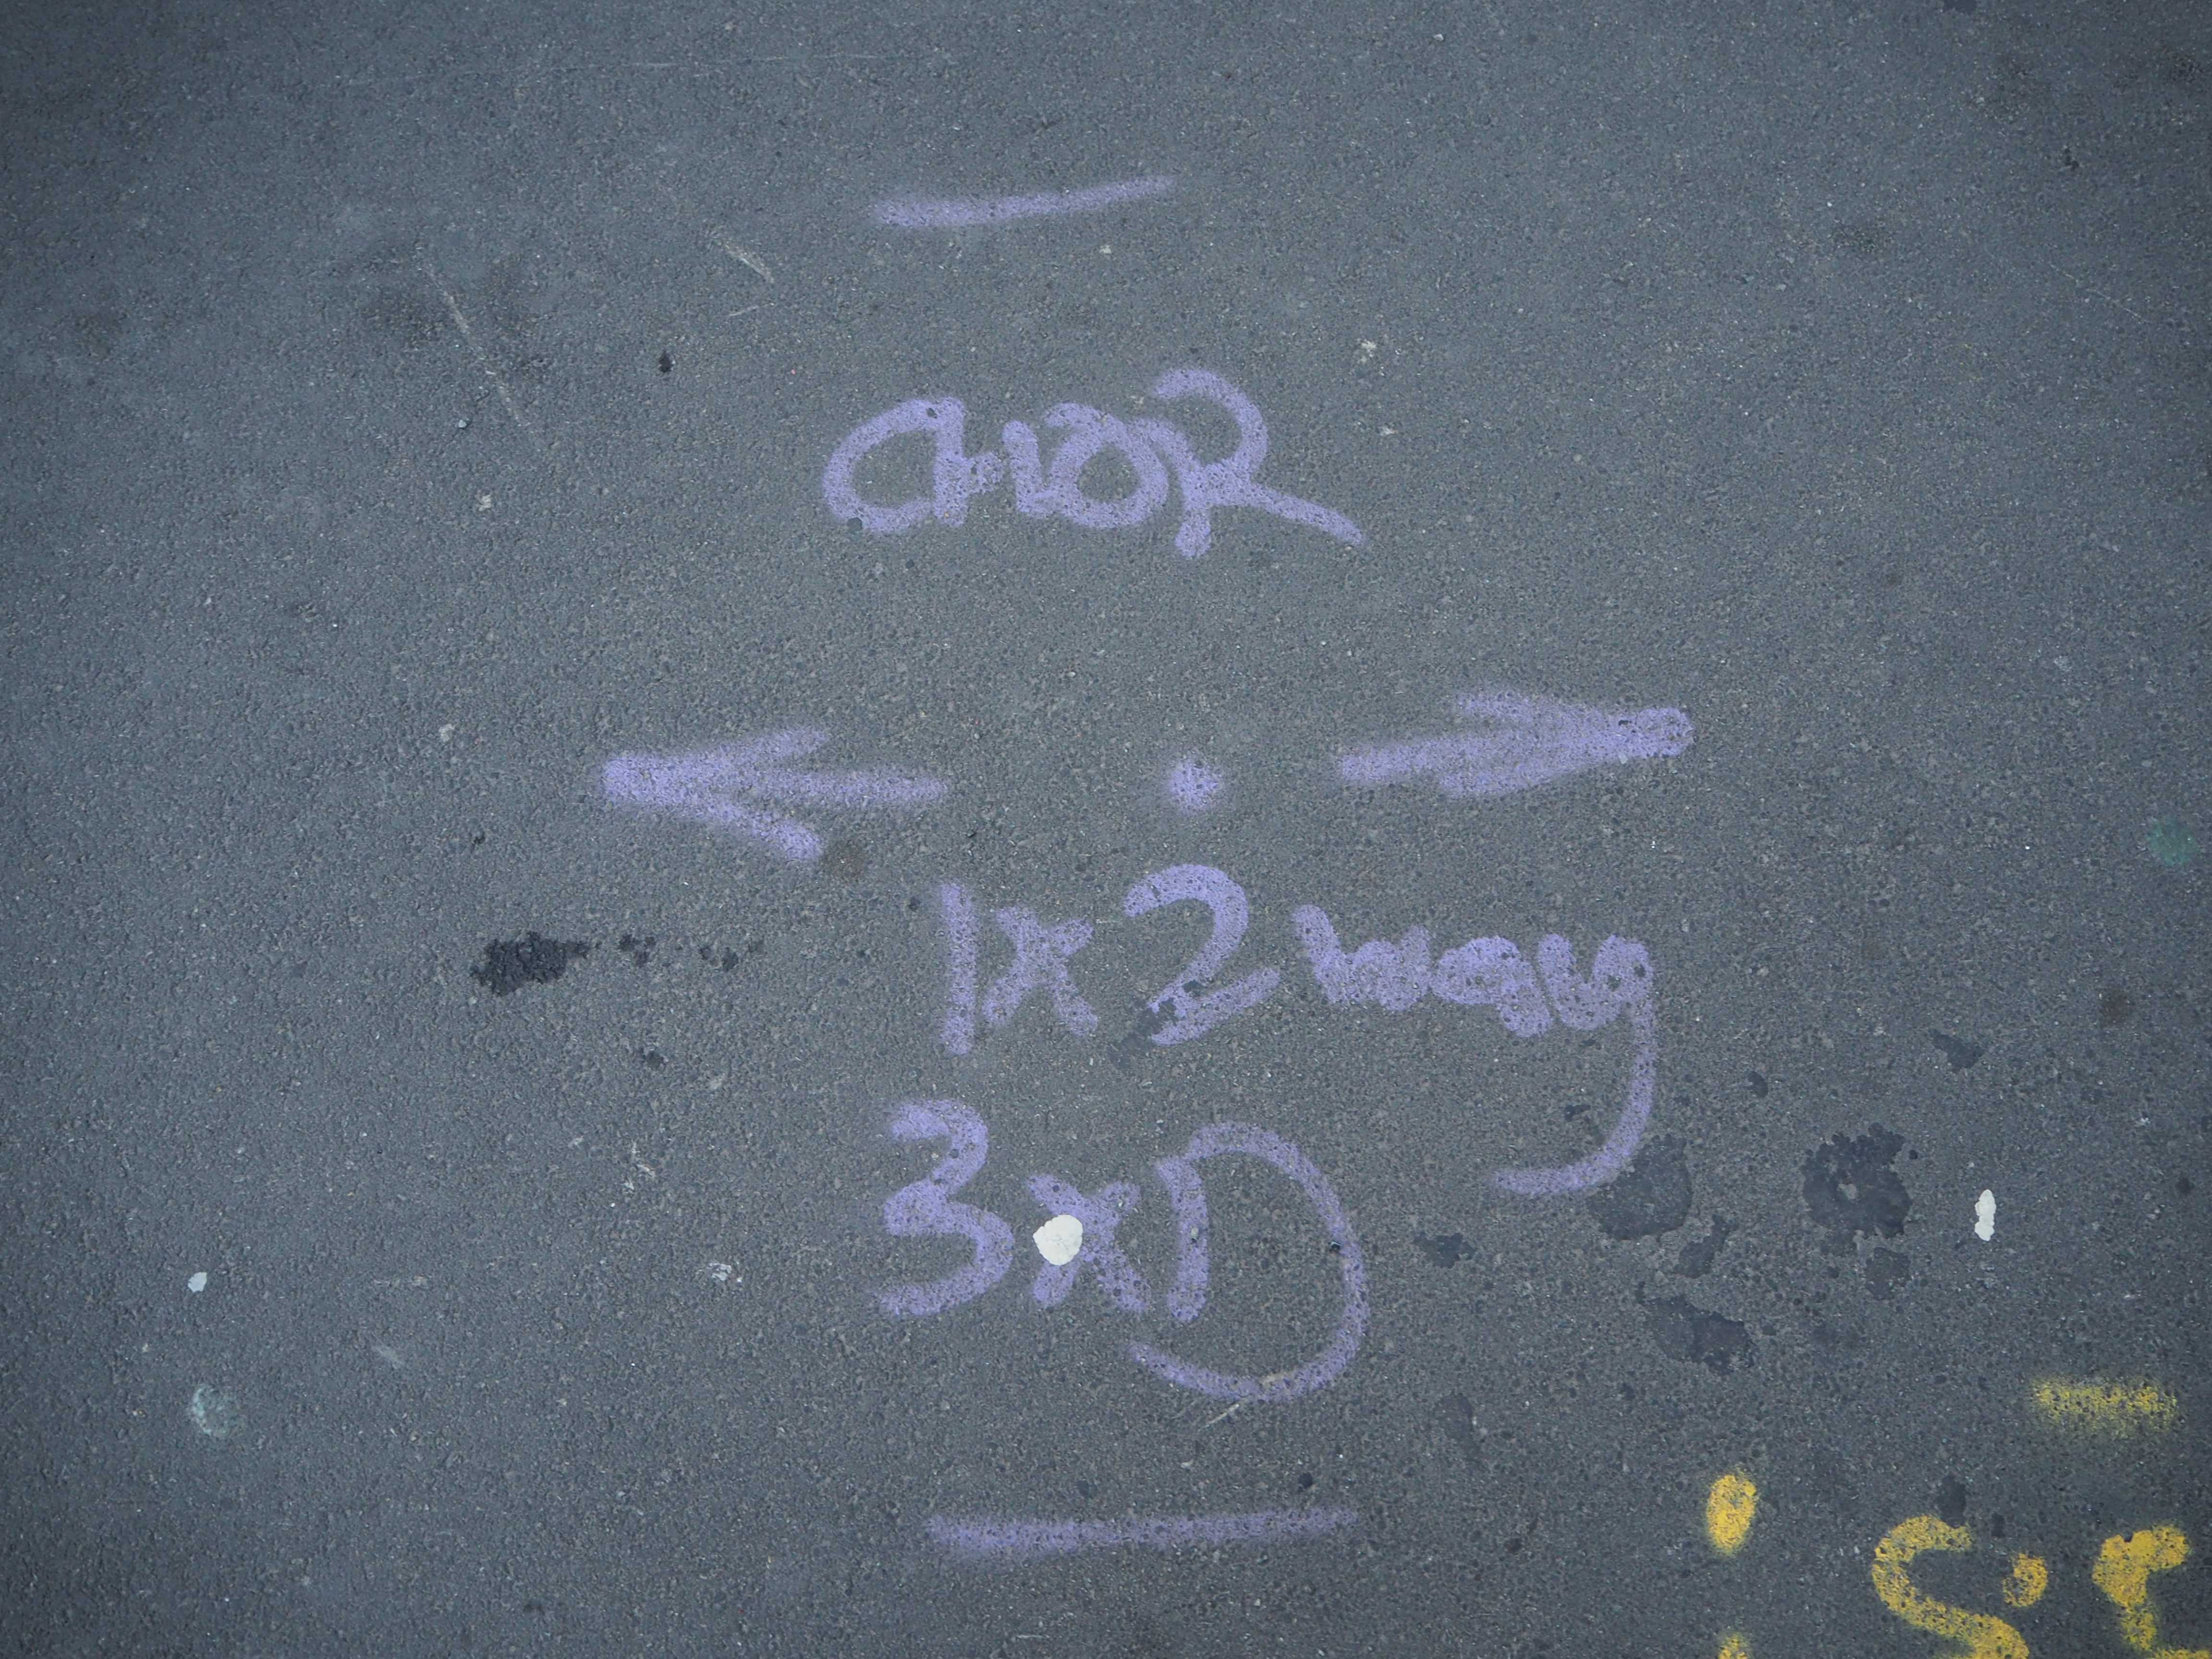 CHOR
1x2way
3xD